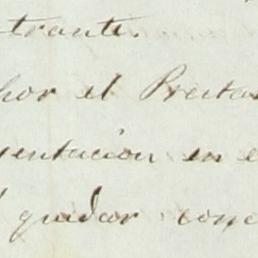 trante.
por el Presta
sentacion en e
quedar conc